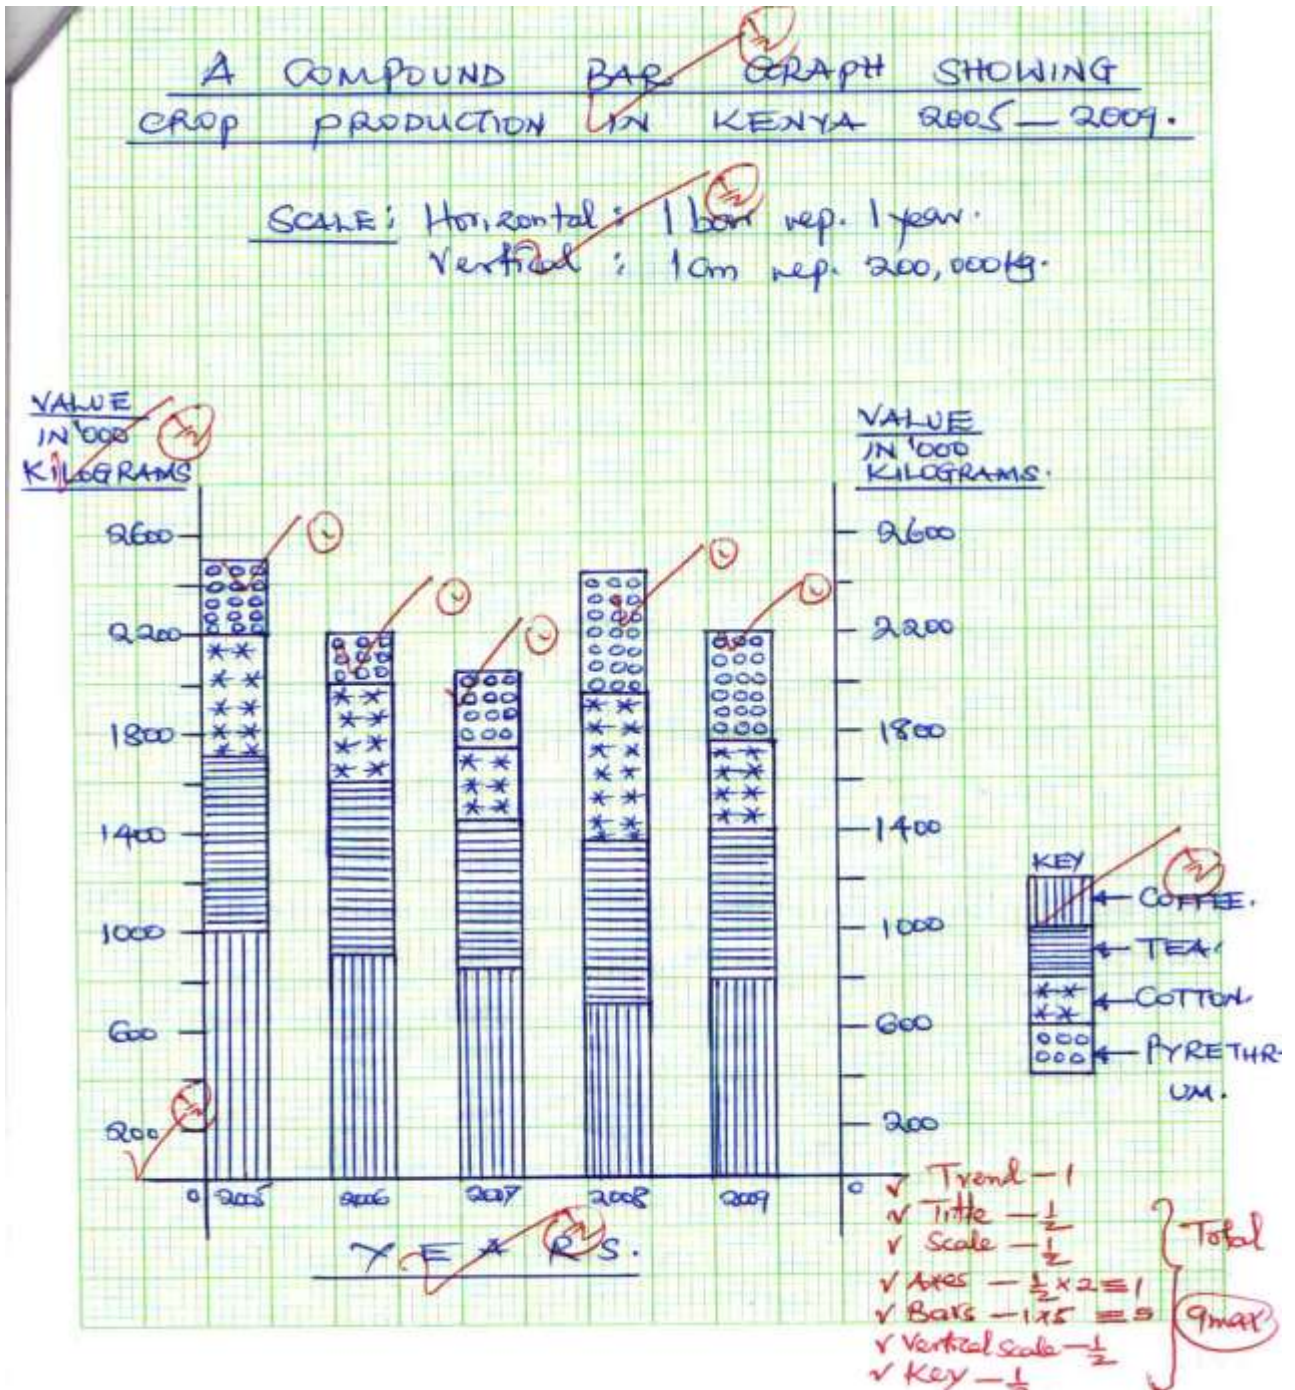 A COMPOUND BAR GRAPH SHOWING
CROP PRODUCTION IN KENYA 2005 — 2009.
SCALE: Horizontal: 1 bar rep. 1 year.
Vertical : 1 cm rep. 200,000 kg.
VALUE
IN '000
KILOGRAMS
VALUE
IN '000
KILOGRAMS.
2600
2200
1800
1400
1000
600
200
0
2600
2200
1800
1400
1000
600
200
0
2005 2006 2007 2008 2009
YEARS.
KEY
COFFEE.
TEA.
COTTON.
PYRETHR-
UM.
✓ Trend — 1
✓ Title — ½
✓ Scale — ½
✓ Axes — ½ x 2 = 1
✓ Bars — 1x5 = 5
✓ Vertical scale — ½
✓ Key — ½
Total
9max